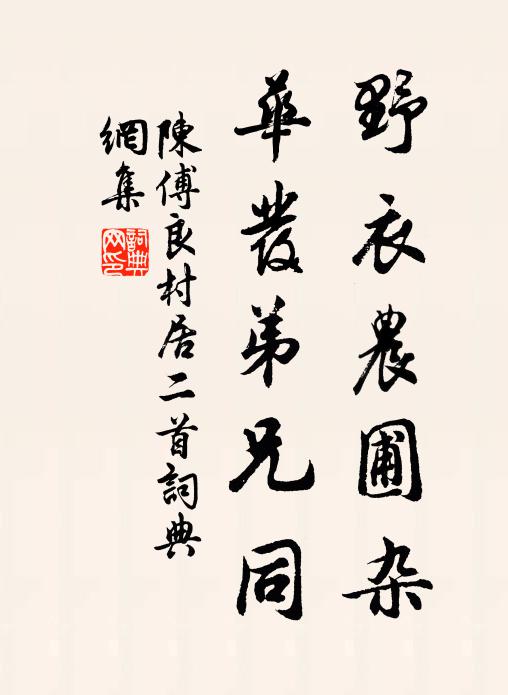 野衣農圃杂
華發弟兄同
陳傅良村居二首詞典
網集
詞典
网印